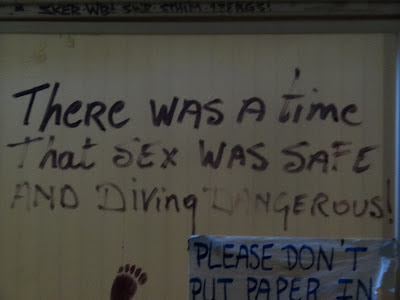 There WAS A time
That SEX WAS SAFE
AND Diving DANGEROUS!
"PLEASE DON'T
PUT PAPER IN